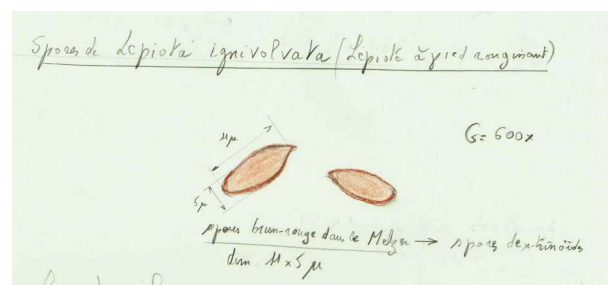 Spores de Lepiota ignivolvata (Lepiote à pied rougissant)
11 µ
G = 600x
5 µ
spores brun-rouge dans le Melzer → spores dextrinoïdes
dim. 11 x 5 µ